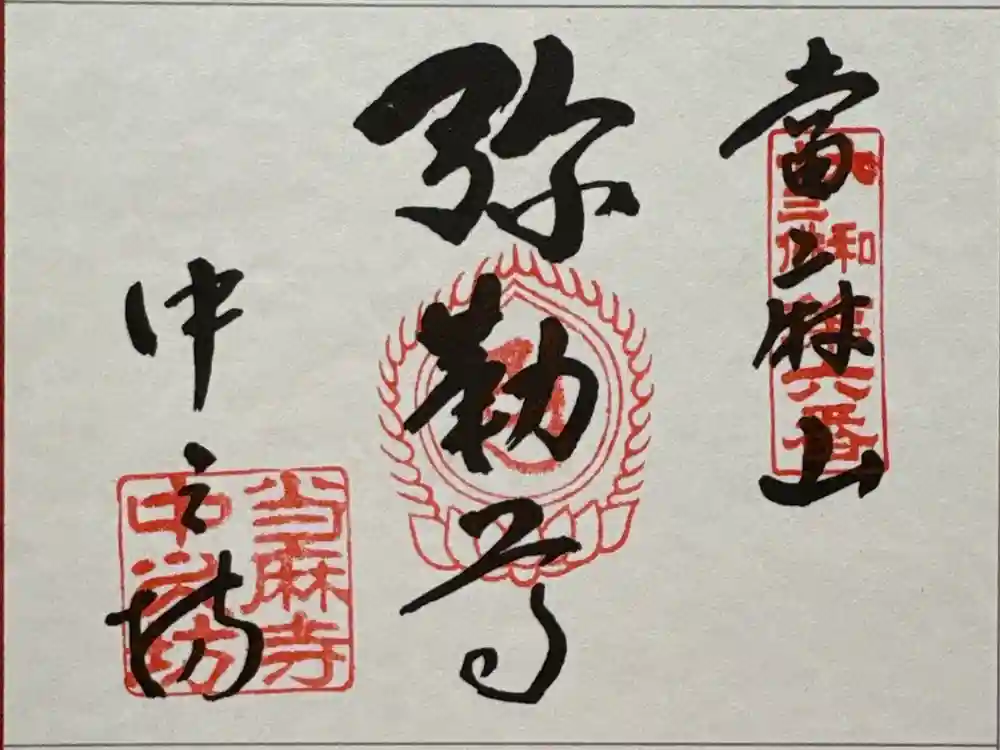 當麻山
大和
十三佛
第六番
弥勒尊
中之坊
当麻寺
中之坊